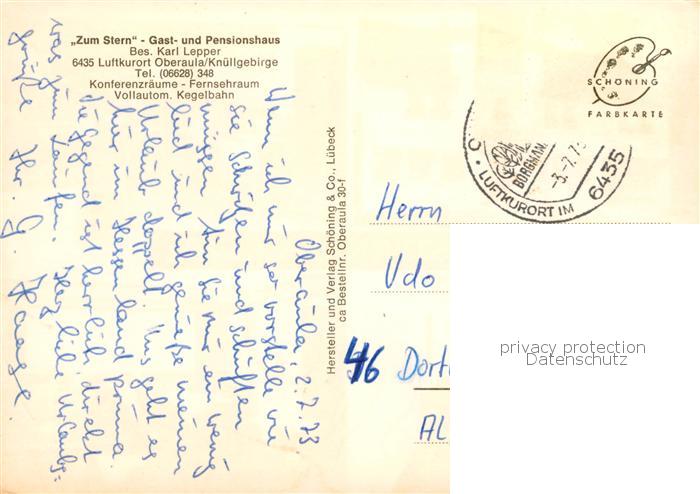 „Zum Stern" - Gast- und Pensionshaus
Bes. Karl Lepper
6435 Luftkurort Oberaula/Knüllgebirge
Tel. (06628) 348
Konferenzräume - Fernsehraum
Vollautom. Kegelbahn
Oberaula, 2.7.73
Wenn ich mir so vorstelle wie
Sie schwitzen und schuften
müssen tun Sie mir ein wenig
leid und ich genieße meinen
Urlaub doppelt. Uns geht es
hier im Hessenland prima.
die Gegend ist herrlich, direkt
was zum Laufen. Herzliche Urlaubs=
grüße Ihr G. Haase
Hersteller und Verlag Schöning & Co., Lübeck
ca Bestellnr. Oberaula 30-f
SCHÖNING
FARBKARTE
LUFTKURORT IM
6435
-3.-7.7
Herrn
Udo
46 Dort